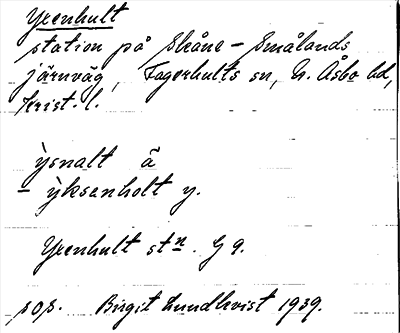 Yxenhult
station på Skåne-Smålands
järnväg, Fagerhults sn, N. Åsbo hd,
Krist. l.
ỳsnalt ä
- ỳksenholt y.
Yxenhult stn. G 9.
sos. Birgit Lundkvist 1939.